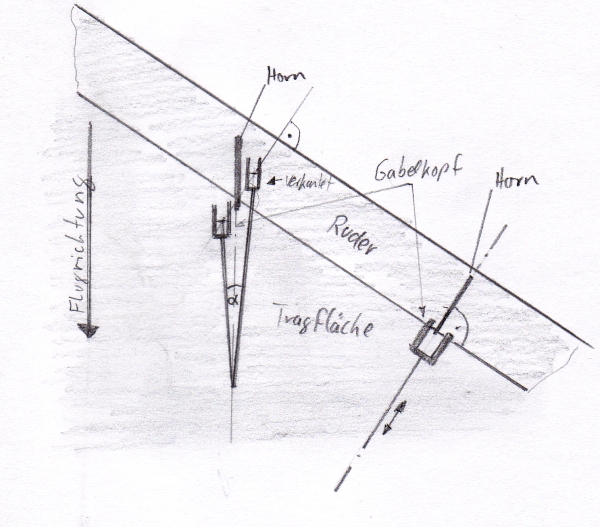 Horn
Gabelkopf
verkantet
Horn
Flugrichtung
Ruder
α
Tragfläche